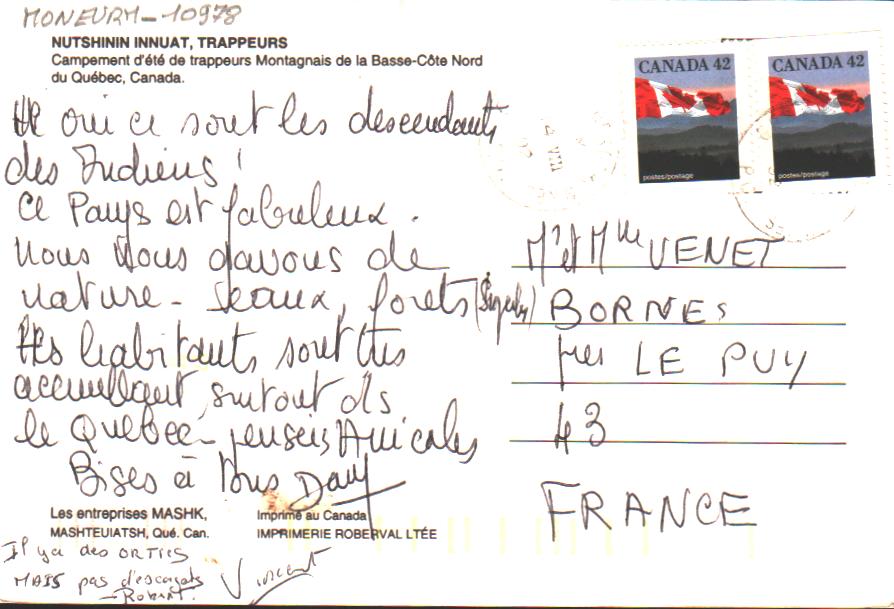 MONEURM-10978
NUTSHININ INNUAT, TRAPPEURS
Campement d'été de trappeurs Montagnais de la Basse-Côte Nord
du Québec, Canada.
CANADA 42
postes/postage
CANADA 42
postes/postage
He oui ce sont les descendants
des Indiens !
Ce Pays est fabuleux.
Nous nous gavons de
nature - seaux, forets
Les habitants sont très
accueillant, surtout ds
le Québec - pensées Amicales
Bises à Tous Dany
Mr et Mme VENET
BORNES
près LE PUY
43
FRANCE
Les entreprises MASHK,
MASHTEUIATSH, Qué. Can.
Imprimé au Canada
IMPRIMERIE ROBERVAL LTÉE
Il y a des ORTIES
MAIS pas d'escargots
- Robert. Vincent